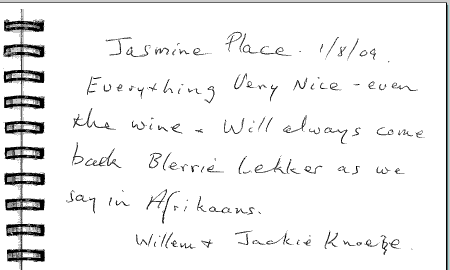 Jasmine Place. 1/8/09.
Everything Very Nice - even
the wine & Will always come
back Blerrie Lekker as we
say in Afrikaans.
Willem & Jackie Knoetze.